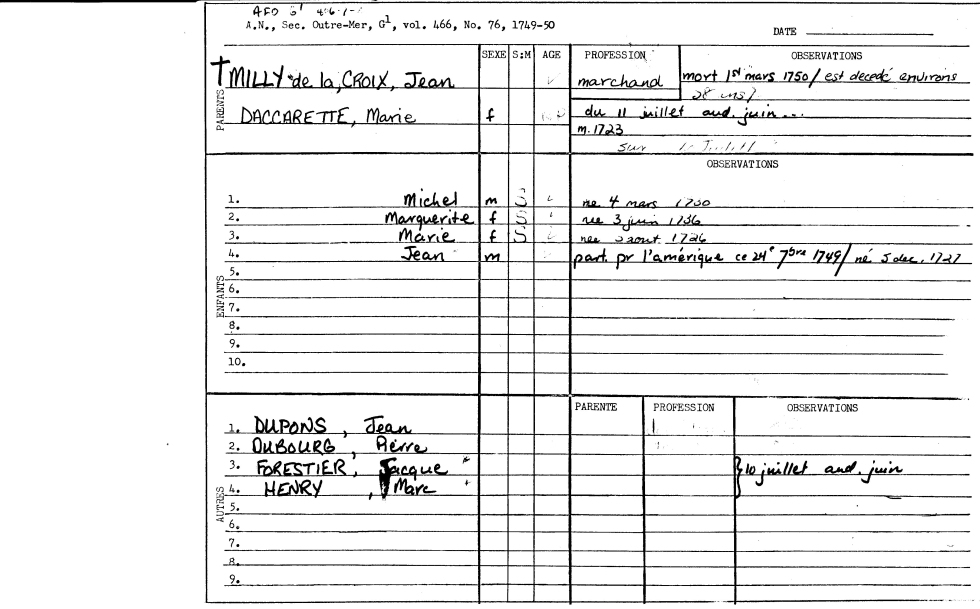 AFO G1 466-1-
A.N., Sec. Outre-Mer, G1, vol. 466, No. 76, 1749-50
DATE
SEXE S:M AGE PROFESSION OBSERVATIONS
PARENTS
†MILLY de la CROIX, Jean marchand mort 1st mars 1750/ est decedé environs
28 ans)
DACCARETTE, Marie f du 11 juillet aud. juin...
m. 1723
sur
OBSERVATIONS
ENFANTS
1. Michel m S née 4 mars 1730
2. Marguerite f S née 3 juin 1736
3. Marie f S née aout 1726
4. Jean m part. pr l'amérique ce 24e 7bre 1749/ né 5 dec. 1727
5.
6.
7.
8.
9.
10.
PARENTE PROFESSION OBSERVATIONS
AUTRES
1. DUPONS, Jean
2. DUBOURG, Pierre
3. FORESTIER, Jacque } 10 juillet aud. juin
4. HENRY, Marc
5.
6.
7.
8.
9.